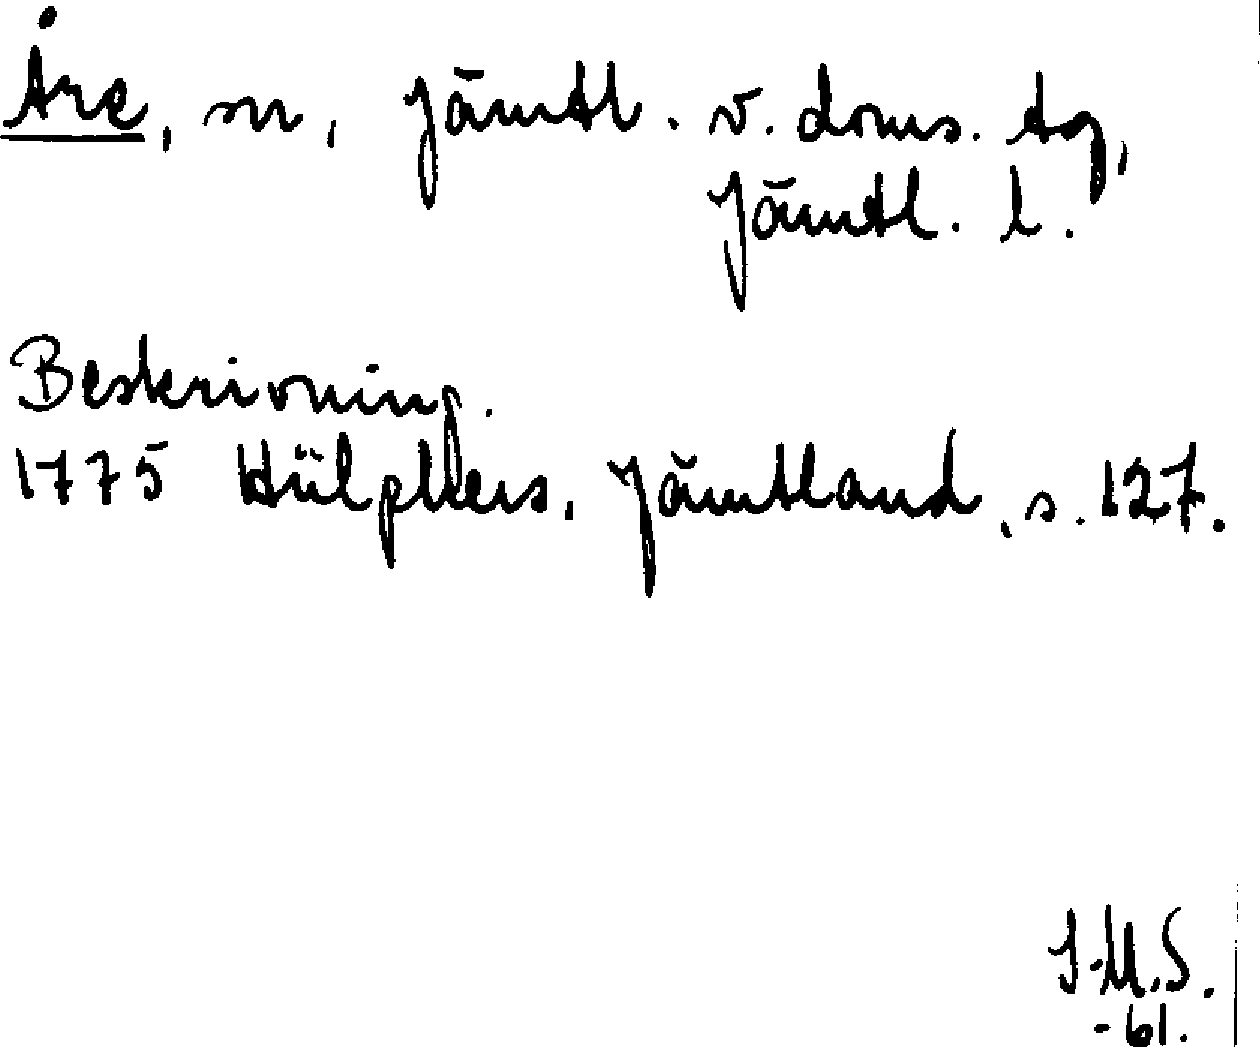 Åre, sn, Jämtl. v. doms. tg,
Jämtl. l.
Beskrivning.
1775 Hülphers, Jämtland, s. 127.
J-M.S.
-61.